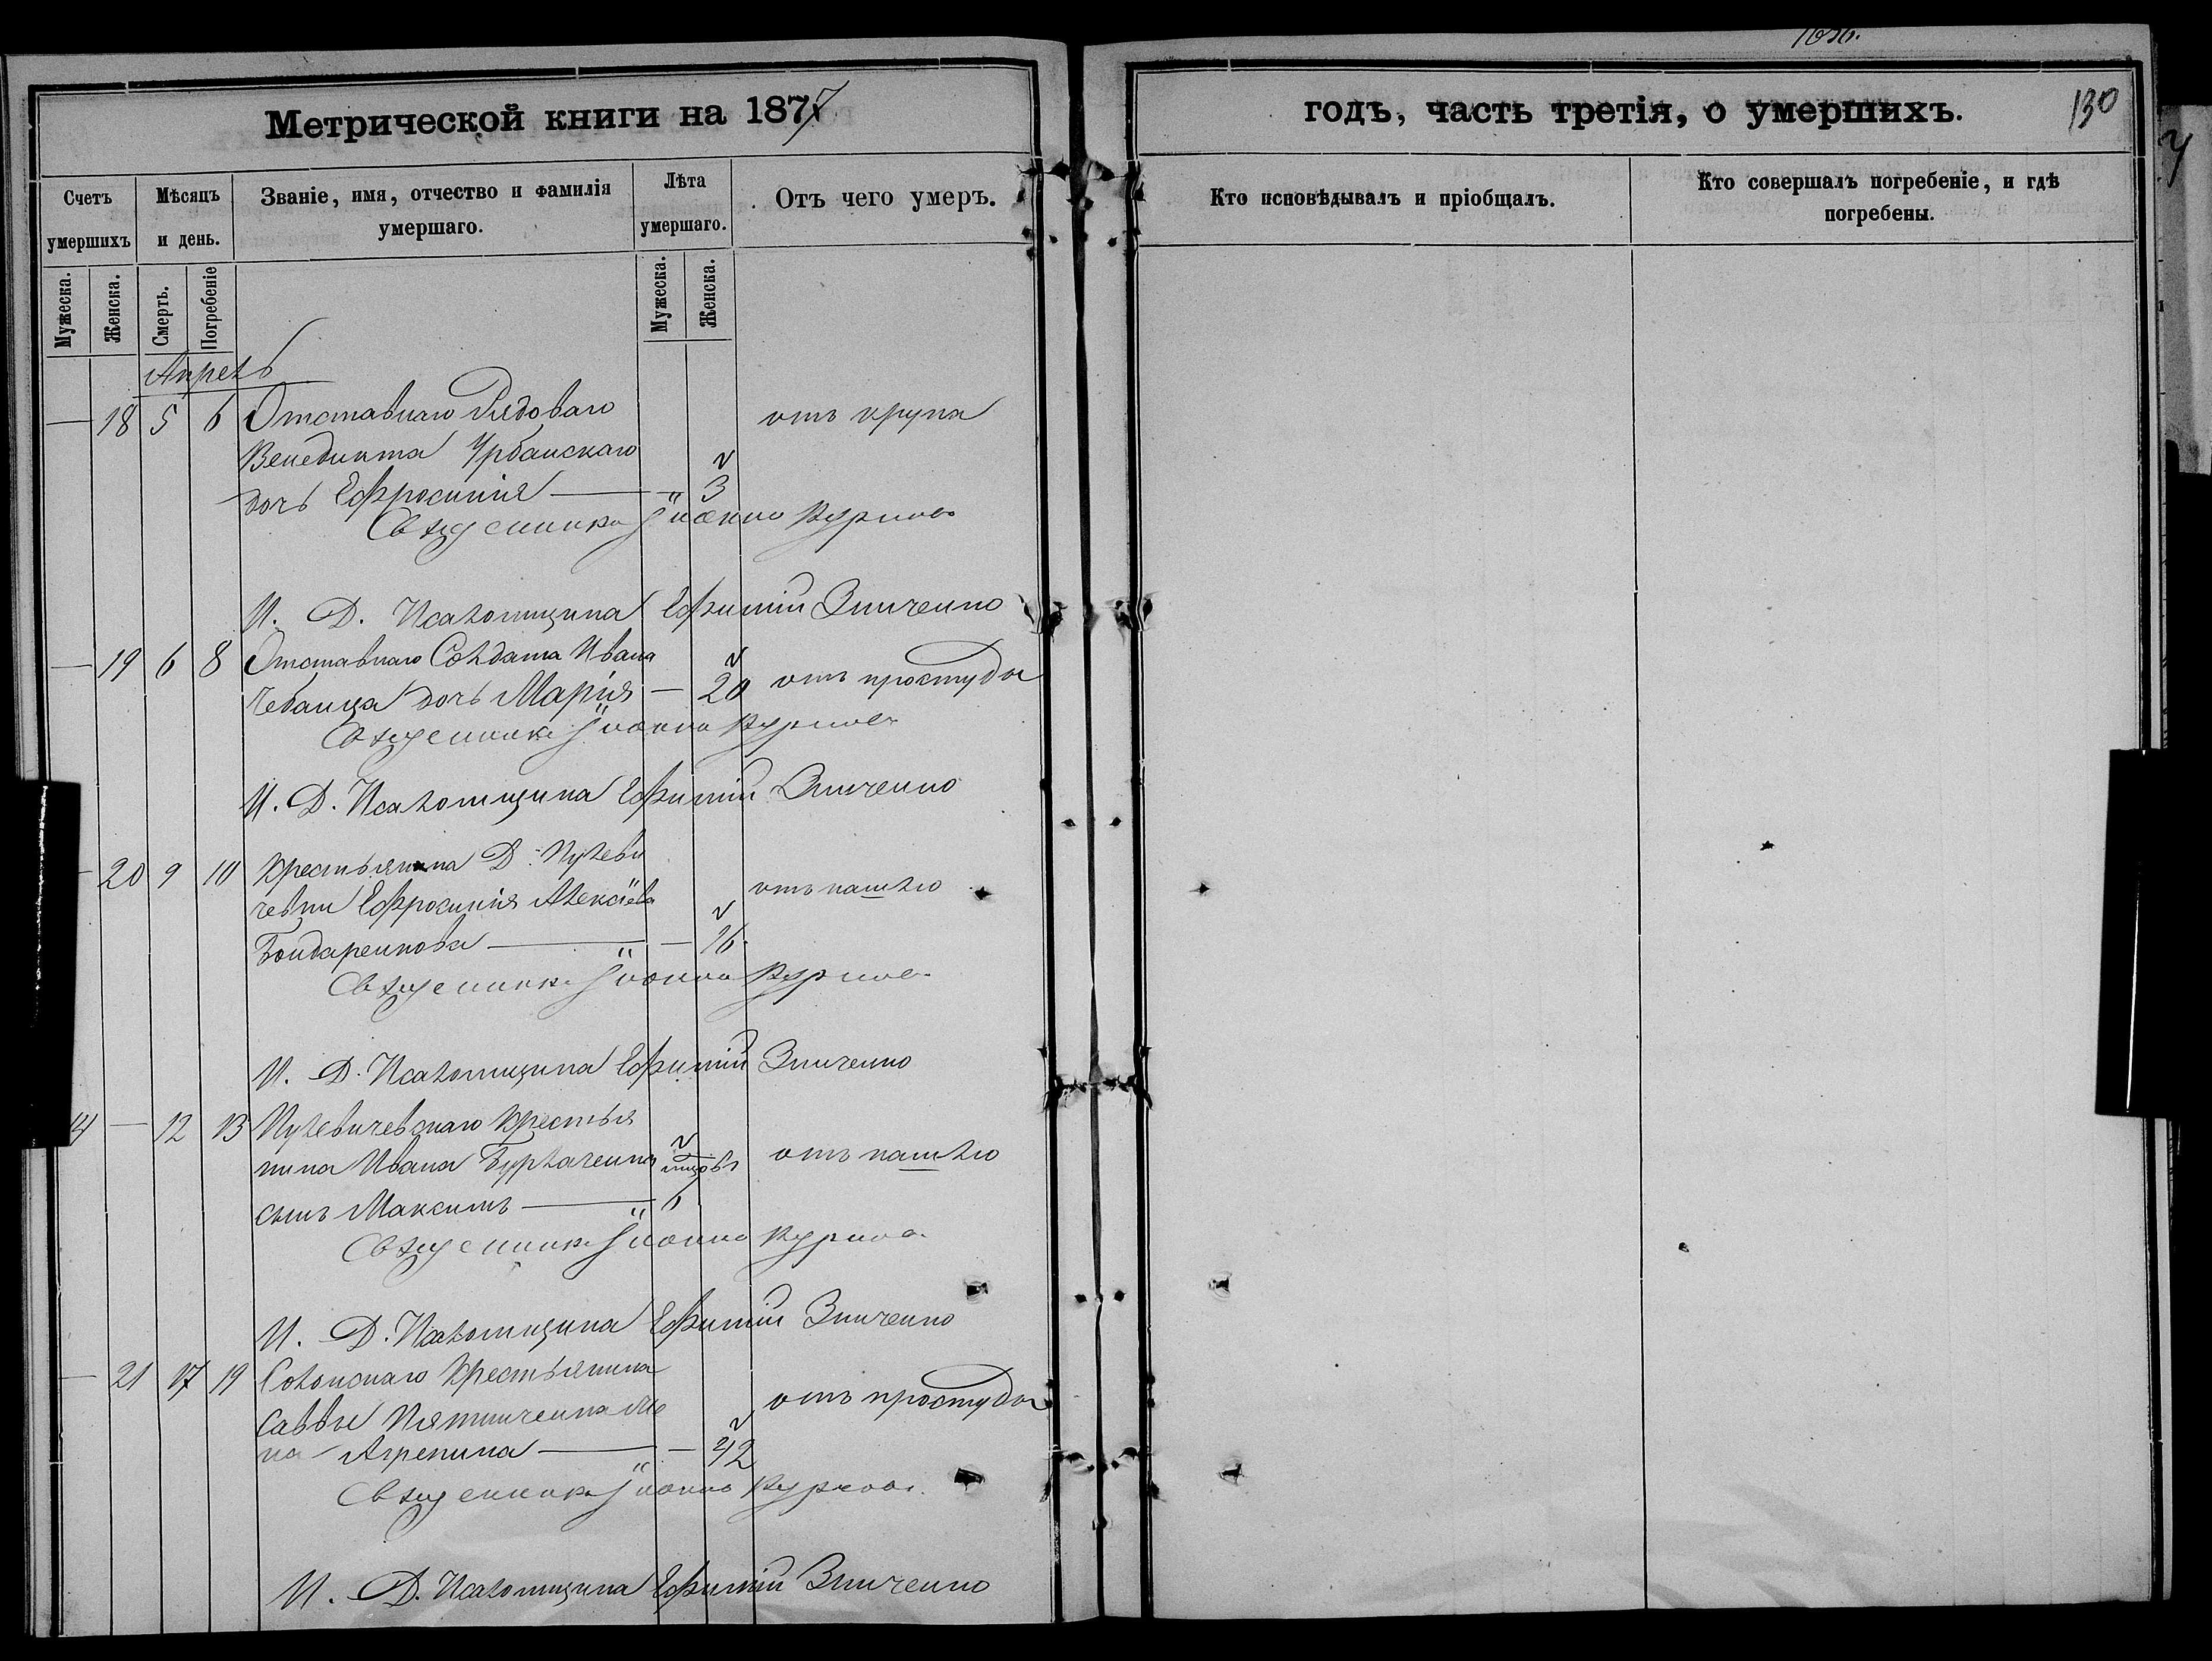 Метрической книги на 1877
годъ, часть третія, о умершихъ.
130
Счетъ умершихъ
Мѣсяцъ и день.
Званіе, имя, отчество и фамилія умершаго.
Лѣта умершаго.
Отъ чего умеръ.
Кто исповѣдывалъ и пріобщалъ.
Кто совершалъ погребеніе, и гдѣ погребены.
Мужеска.
Женска.
Смерть.
Погребеніе
Мужеска.
Женска.
Апрель
— 18 5 6 Отставнаго Рядоваго отъ крупа
Венедикта Урбанскаго
дочь Ефросинія — " 3
Священникъ Іоаннъ
И. Д. Псаломщика Ефимій Зинченко
— 19 6 8 Отставнаго Солдата Ивана
Чебанца дочь Марія — 20 отъ простуды
Священникъ Іоаннъ
И. Д. Псаломщика Ефимій Зинченко
— 20 9 10 Крестьянка Д.
Ефросинія Алексіева отъ кашлю
Бондаренкова — " — 16
Священникъ Іоаннъ
И. Д. Псаломщика Ефимій Зинченко
14 — 12 13 Крестья
нина Ивана Бурлаченка мцовъ отъ кашлю
сынъ Максимъ — " 6
Священникъ Іоаннъ
И. Д. Псаломщика Ефимій Зинченко
— 21 17 19 Крестьянина
Саввы Пятниченка же отъ простуды
на Агрепина — " — 42
Священникъ Іоаннъ
И. Д. Псаломщика Ефимій Зинченко